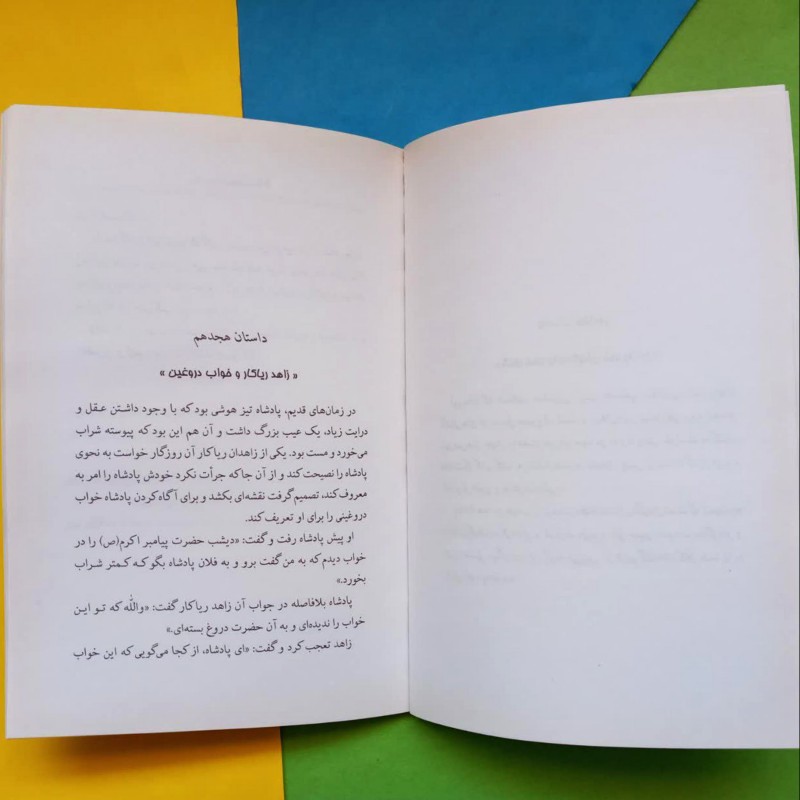 داستان هجدهم
« زاهد ریاکار و خواب دروغین »
در زمان‌های قدیم، پادشاه تیز هوشی بود که با وجود داشتن عقل و
درایت زیاد، یک عیب بزرگ داشت و آن هم این بود که پیوسته شراب
می‌خورد و مست بود. یکی از زاهدان ریاکار آن روزگار خواست به نحوی
پادشاه را نصیحت کند و از آن جا که جرأت نکرد خودش پادشاه را امر به
معروف کند، تصمیم گرفت نقشه‌ای بکشد و برای آگاه کردن پادشاه خواب
دروغینی را برای او تعریف کند.
او پیش پادشاه رفت و گفت: «دیشب حضرت پیامبر اکرم(ص) را در
خواب دیدم که به من گفت برو و به فلان پادشاه بگو که کمتر شراب
بخورد.»
پادشاه بلافاصله در جواب آن زاهد ریاکار گفت: «والله که تو این
خواب را ندیده‌ای و به آن حضرت دروغ بسته‌ای.»
زاهد تعجب کرد و گفت: «ای پادشاه، از کجا می‌گویی که این خواب